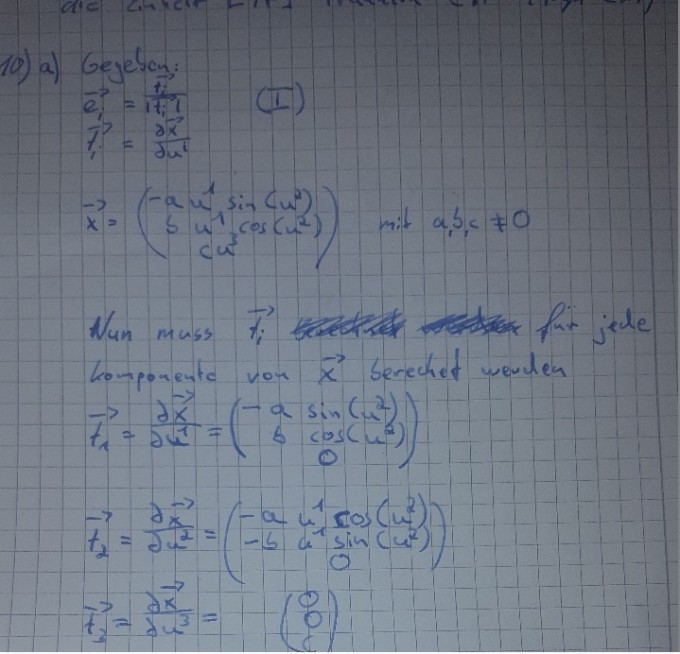 die Einheit
10) a) Gegeben:
e⃗ᵢ = t⃗ᵢ / |t⃗ᵢ| (I)
t⃗ᵢ = ∂x⃗ / ∂uⁱ
x⃗ = ( -a u¹ sin(u²)
b u¹ cos(u²)
cu³ ) mit a,b,c ≠ 0
Nun muss t⃗ᵢ für jede
Komponente von x⃗ berechet werden
t⃗₁ = ∂x⃗ / ∂u¹ = ( -a sin(u²)
b cos(u²)
0 )
t⃗₂ = ∂x⃗ / ∂u² = ( -a u¹ cos(u²)
-b u¹ sin(u²)
0 )
t⃗₃ = ∂x⃗ / ∂u³ = ( 0
0
c )